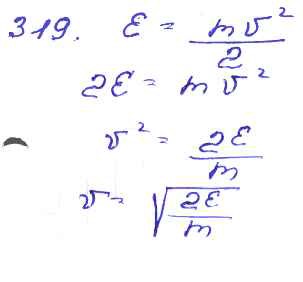 319. E = mv²/2
2E = mv²
v² = 2E/m
v = √(2E/m)